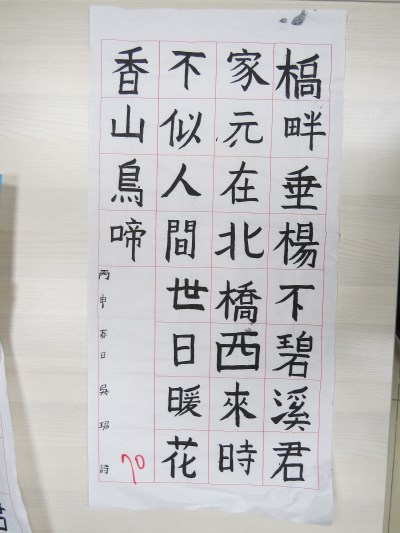 槅畔垂楊不碧溪君
家元在北橋西來時
不似人間世日暖花
香山鳥啼
丙申春日吳琚詩
70